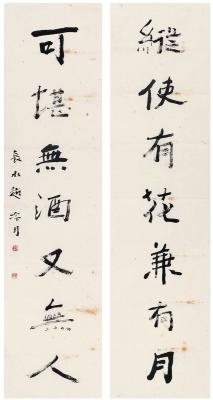 縱使有花兼有月
可堪無酒又無人